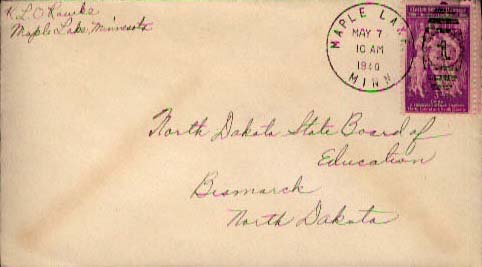 R. L. O'Rourke
Maple Lake, Minnesota
MAPLE LAKE
MAY 7
10 AM
1940
MINN.
1
North Dakota State Board of
Education
Bismarck
North Dakota